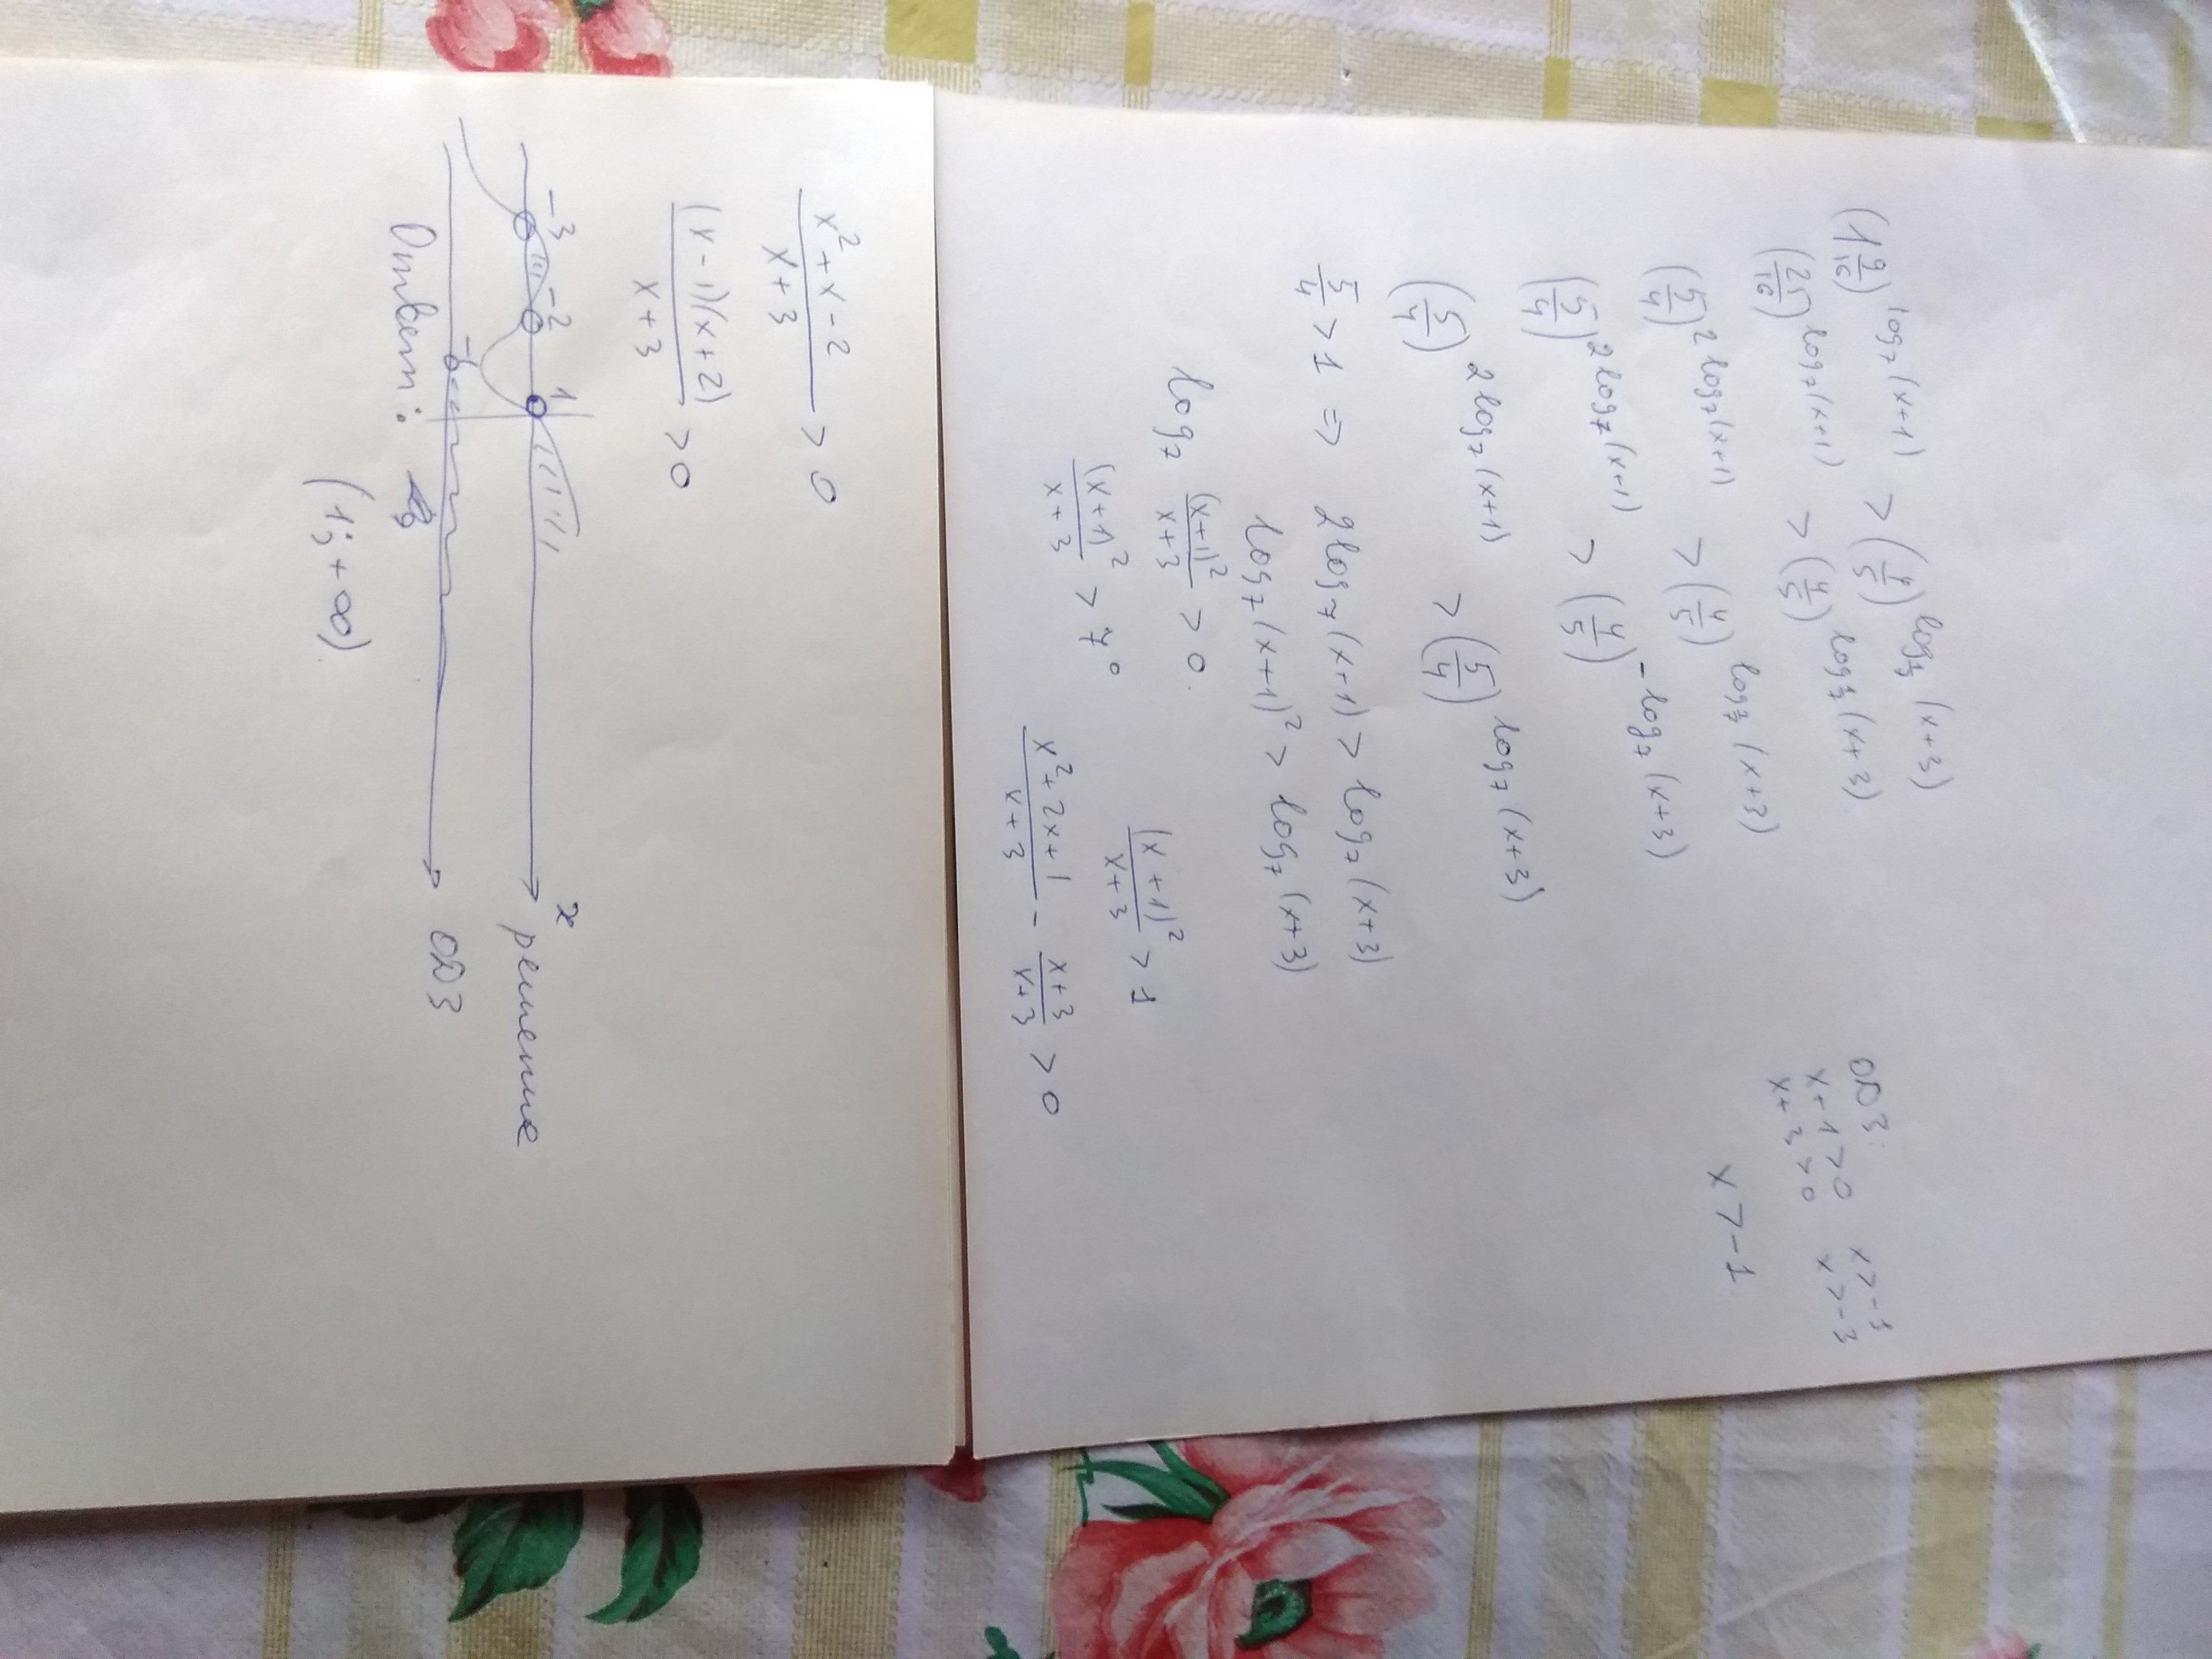 (1 9/16)^log₇(x+1) > (4/5)^log_{1/7}(x+3)
ОДЗ:
(25/16)^log₇(x+1) > (4/5)^log_{1/7}(x+3)
x+1>0 x>-1
x+3>0 x>-3
(5/4)^2log₇(x+1) > (4/5)^log_{1/7}(x+3)
x>-1
(5/4)^2log₇(x+1) > (4/5)^-log₇(x+3)
(5/4)^2log₇(x+1) > (5/4)^log₇(x+3)
5/4 > 1 => 2log₇(x+1) > log₇(x+3)
log₇(x+1)² > log₇(x+3)
log₇ (x+1)²/(x+3) > 0.
(x+1)²/(x+3) > 7⁰
(x+1)²/(x+3) > 1
(x²+2x+1)/(x+3) - (x+3)/(x+3) > 0
(x²+x-2)/(x+3) > 0
(x-1)(x+2)/(x+3) > 0
-3 -2 1 x решение
-1 ОДЗ
Ответ:
(1; +∞)